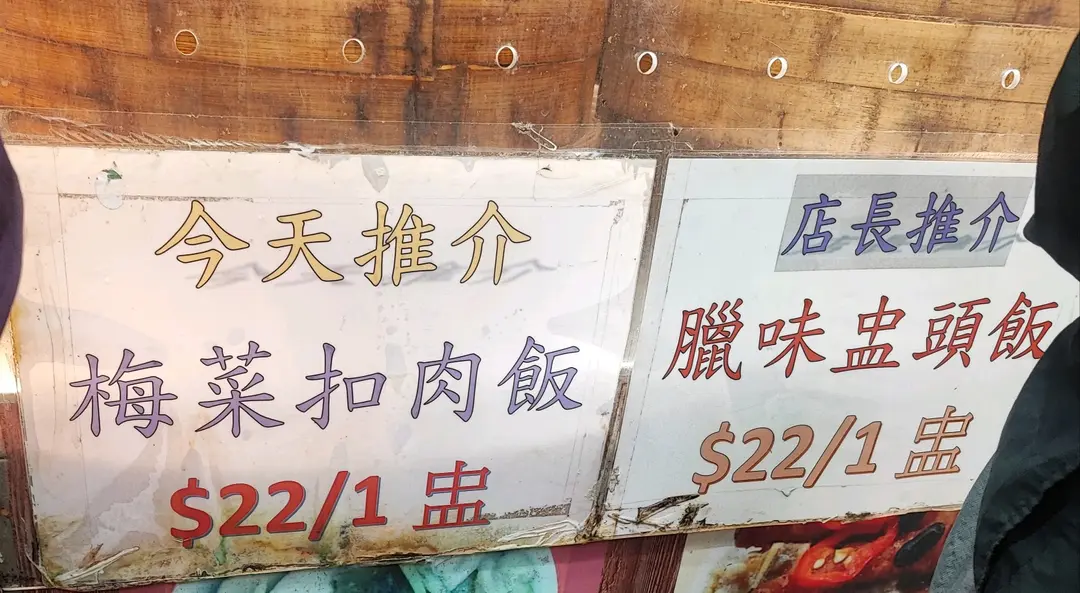 今天推介
梅菜扣肉飯
$22/1 盅
店長推介
臘味盅頭飯
$22/1 盅